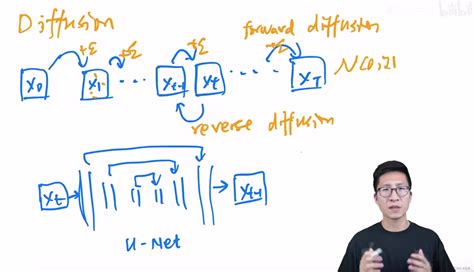 Diffusion
forward diffusion
+ε +ε +ε +ε
X₀ X₁ ... Xt-1 Xt ... XT N(0,I)
reverse diffusion
Xt Xt-1
U-Net